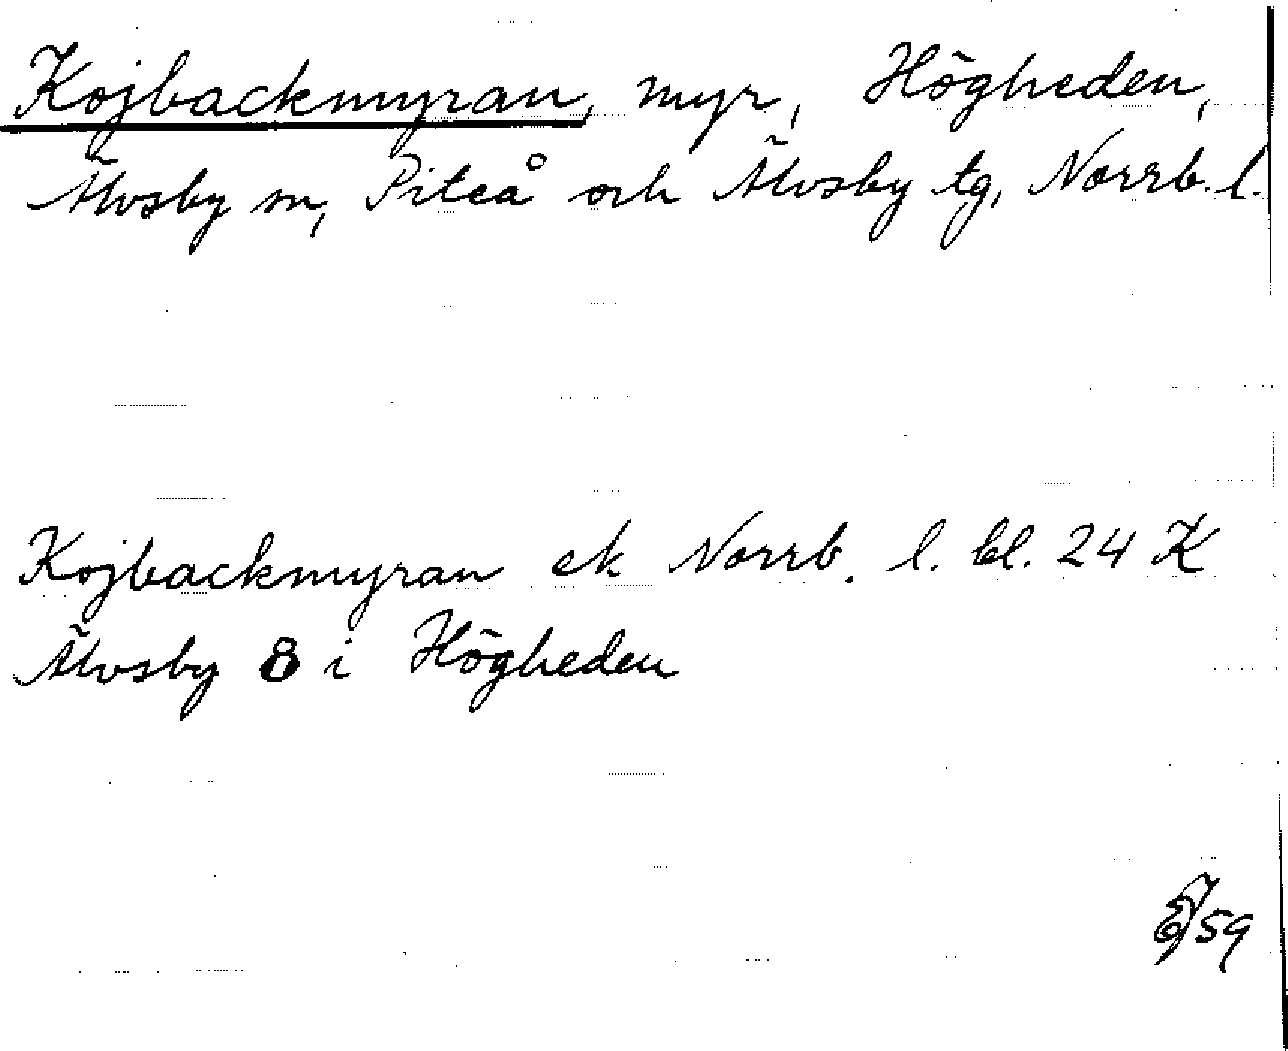 Kojbackmyran, myr, Högheden,
Älvsby sn, Piteå och Älvsby tg, Norrb. l.
Kojbackmyran ek Norrb. l. bl. 24 K
Älvsby 8 i Högheden
/59